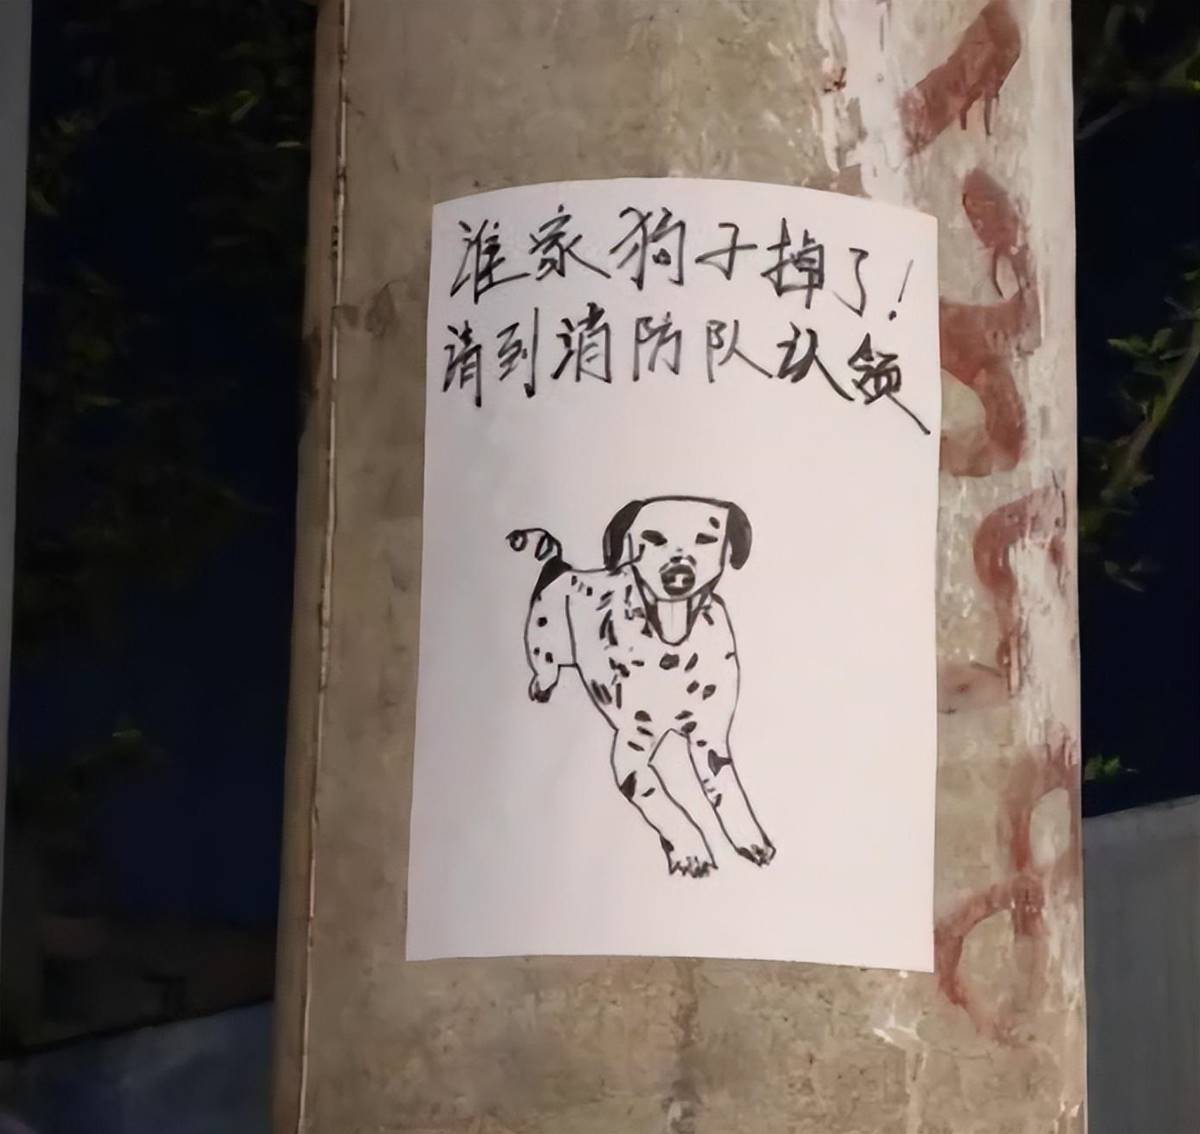 谁家狗子掉了！
请到消防队认领